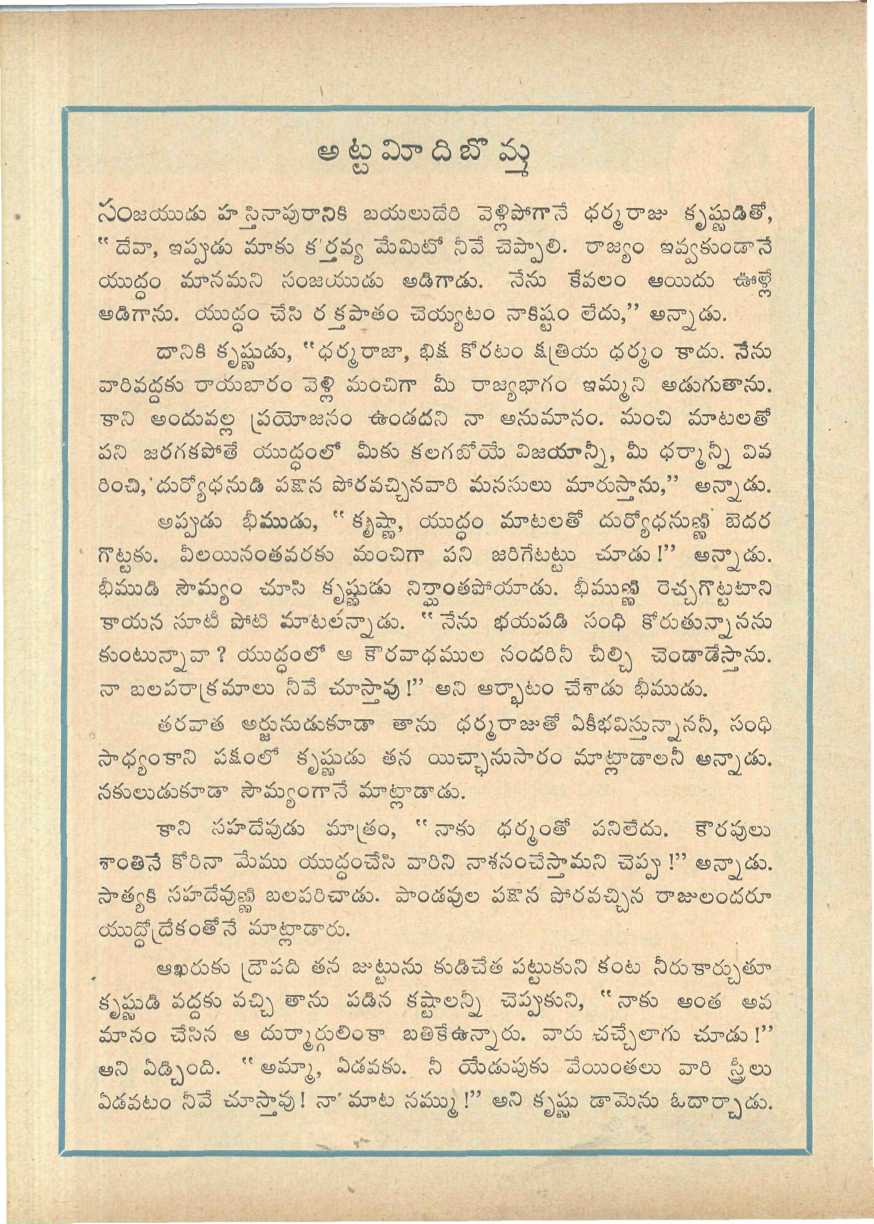 అట్టమీదిబొమ్మ
సంజయుడు హస్తినాపురానికి బయలుదేరి వెళ్లిపోగానే ధర్మరాజు కృష్ణుడితో,
“దేవా, ఇప్పుడు మాకు కర్తవ్య మేమిటో నీవే చెప్పాలి. రాజ్యం ఇవ్వకుండానే
యుద్ధం మానమని సంజయుడు అడిగాడు. నేను కేవలం అయిదు ఊళ్లే
అడిగాను. యుద్ధం చేసి రక్తపాతం చెయ్యటం నాకిష్టం లేదు,” అన్నాడు.
దానికి కృష్ణుడు, “ధర్మరాజా, భిక్ష కోరటం క్షత్రియ ధర్మం కాదు. నేను
వారివద్దకు రాయబారం వెళ్లి మంచిగా మీ రాజ్యభాగం ఇమ్మని అడుగుతాను.
కాని అందువల్ల ప్రయోజనం ఉండదని నా అనుమానం. మంచి మాటలతో
పని జరగకపోతే యుద్ధంలో మీకు కలగబోయే విజయాన్నీ, మీ ధర్మాన్నీ వివ
రించి, దుర్యోధనుడి పక్షాన పోరవచ్చినవారి మనసులు మారుస్తాను,” అన్నాడు.
అప్పుడు భీముడు, “కృష్ణా, యుద్ధం మాటలతో దుర్యోధనుణ్ణి బెదర
గొట్టకు. వీలయినంతవరకు మంచిగా పని జరిగేటట్టు చూడు!” అన్నాడు.
భీముడి సౌమ్యం చూసి కృష్ణుడు నిర్ఘాంతపోయాడు. భీముణ్ణి రెచ్చగొట్టటాని
కాయన సూటీ పోటి మాటలన్నాడు. “నేను భయపడి సంధి కోరుతున్నానను
కుంటున్నావా? యుద్ధంలో ఆ కౌరవాధముల సందరినీ చీల్చి చెండాడేస్తాను.
నా బలపరాక్రమాలు నీవే చూస్తావు!” అని ఆర్భాటం చేశాడు భీముడు.
తరవాత అర్జునుడుకూడా తాను ధర్మరాజుతో ఏకీభవిస్తున్నాననీ, సంధి
సాధ్యంకాని పక్షంలో కృష్ణుడు తన యిచ్ఛానుసారం మాట్లాడాలనీ అన్నాడు.
నకులుడుకూడా సౌమ్యంగానే మాట్లాడాడు.
కాని సహదేవుడు మాత్రం, “నాకు ధర్మంతో పనిలేదు. కౌరవులు
శాంతినే కోరినా మేము యుద్ధంచేసి వారిని నాశనంచేస్తామని చెప్పు!” అన్నాడు.
సాత్యకి సహదేవుణ్ణి బలపరిచాడు. పాండవుల పక్షాన పోరవచ్చిన రాజులందరూ
యుద్ధోద్రేకంతోనే మాట్లాడారు.
ఆఖరుకు ద్రౌపది తన జుట్టును కుడిచేత పట్టుకుని కంట నీరుకార్చుతూ
కృష్ణుడి వద్దకు వచ్చి తాను పడిన కష్టాలన్నీ చెప్పుకుని, “నాకు అంత అవ
మానం చేసిన ఆ దుర్మార్గులింకా బతికేఉన్నారు. వారు చచ్చేలాగు చూడు!”
అని ఏడ్చింది. “అమ్మా, ఏడవకు. నీ యేడుపుకు వేయింతలు వారి స్త్రీలు
ఏడవటం నీవే చూస్తావు! నా మాట నమ్ము!” అని కృష్ణు డామెను ఓదార్చాడు.